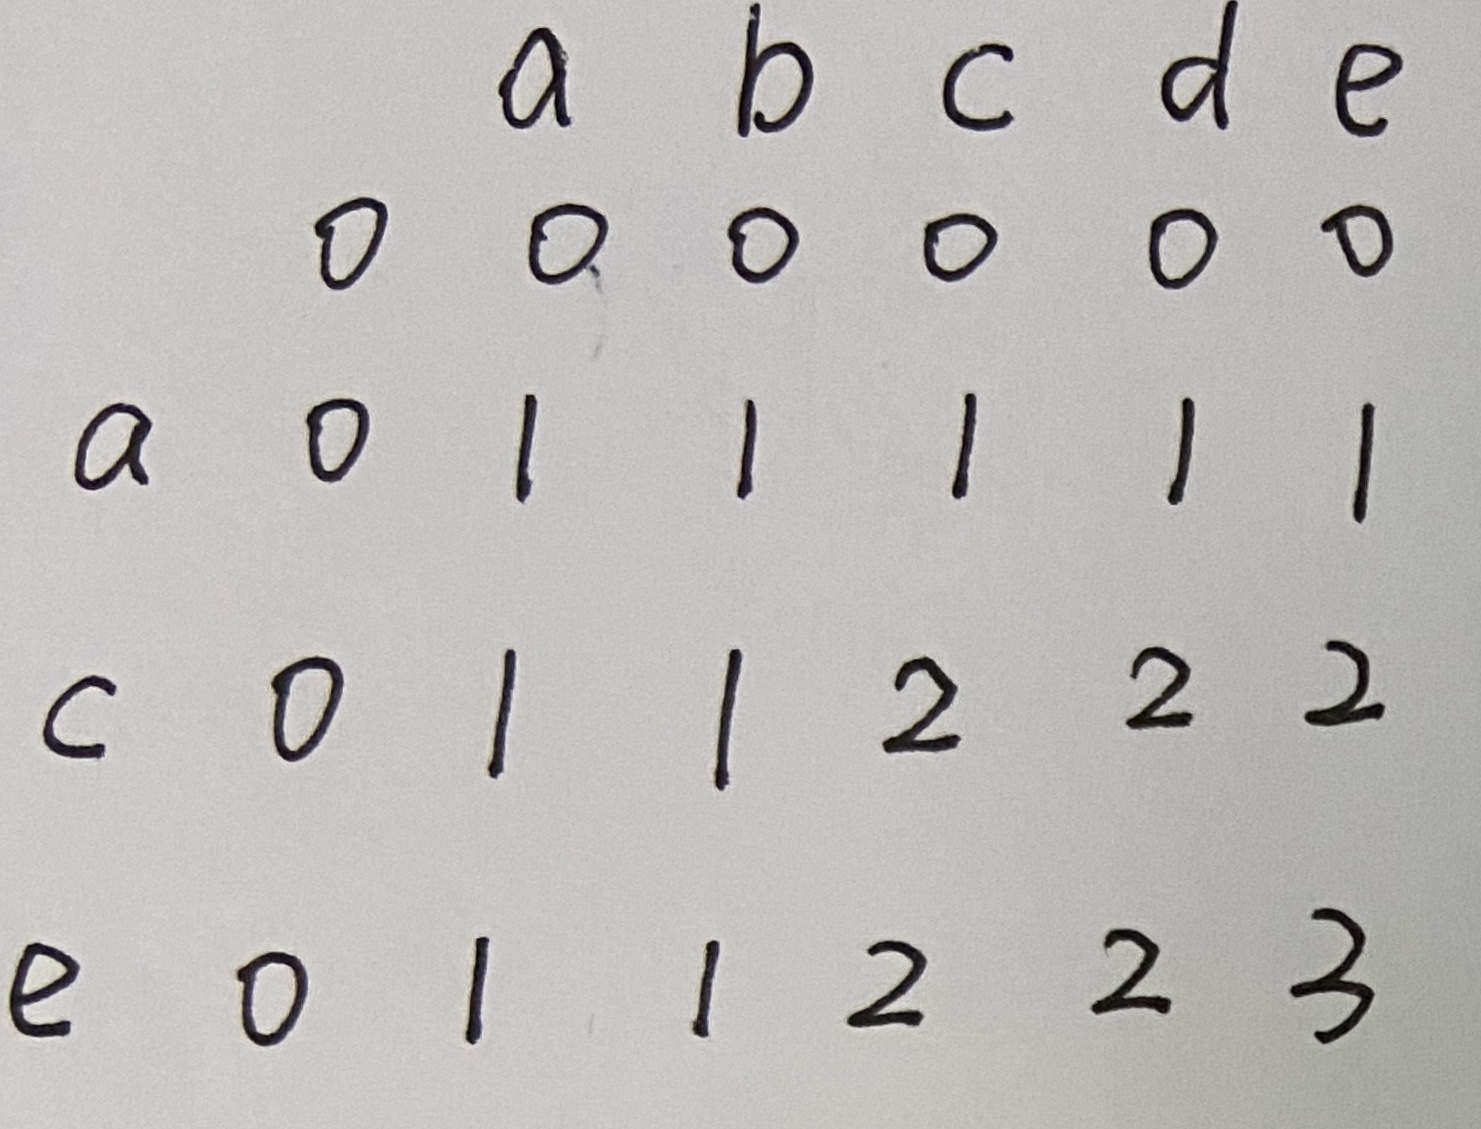 a b c d e
0 0 0 0 0 0
a 0 1 1 1 1 1
c 0 1 1 2 2 2
e 0 1 1 2 2 3